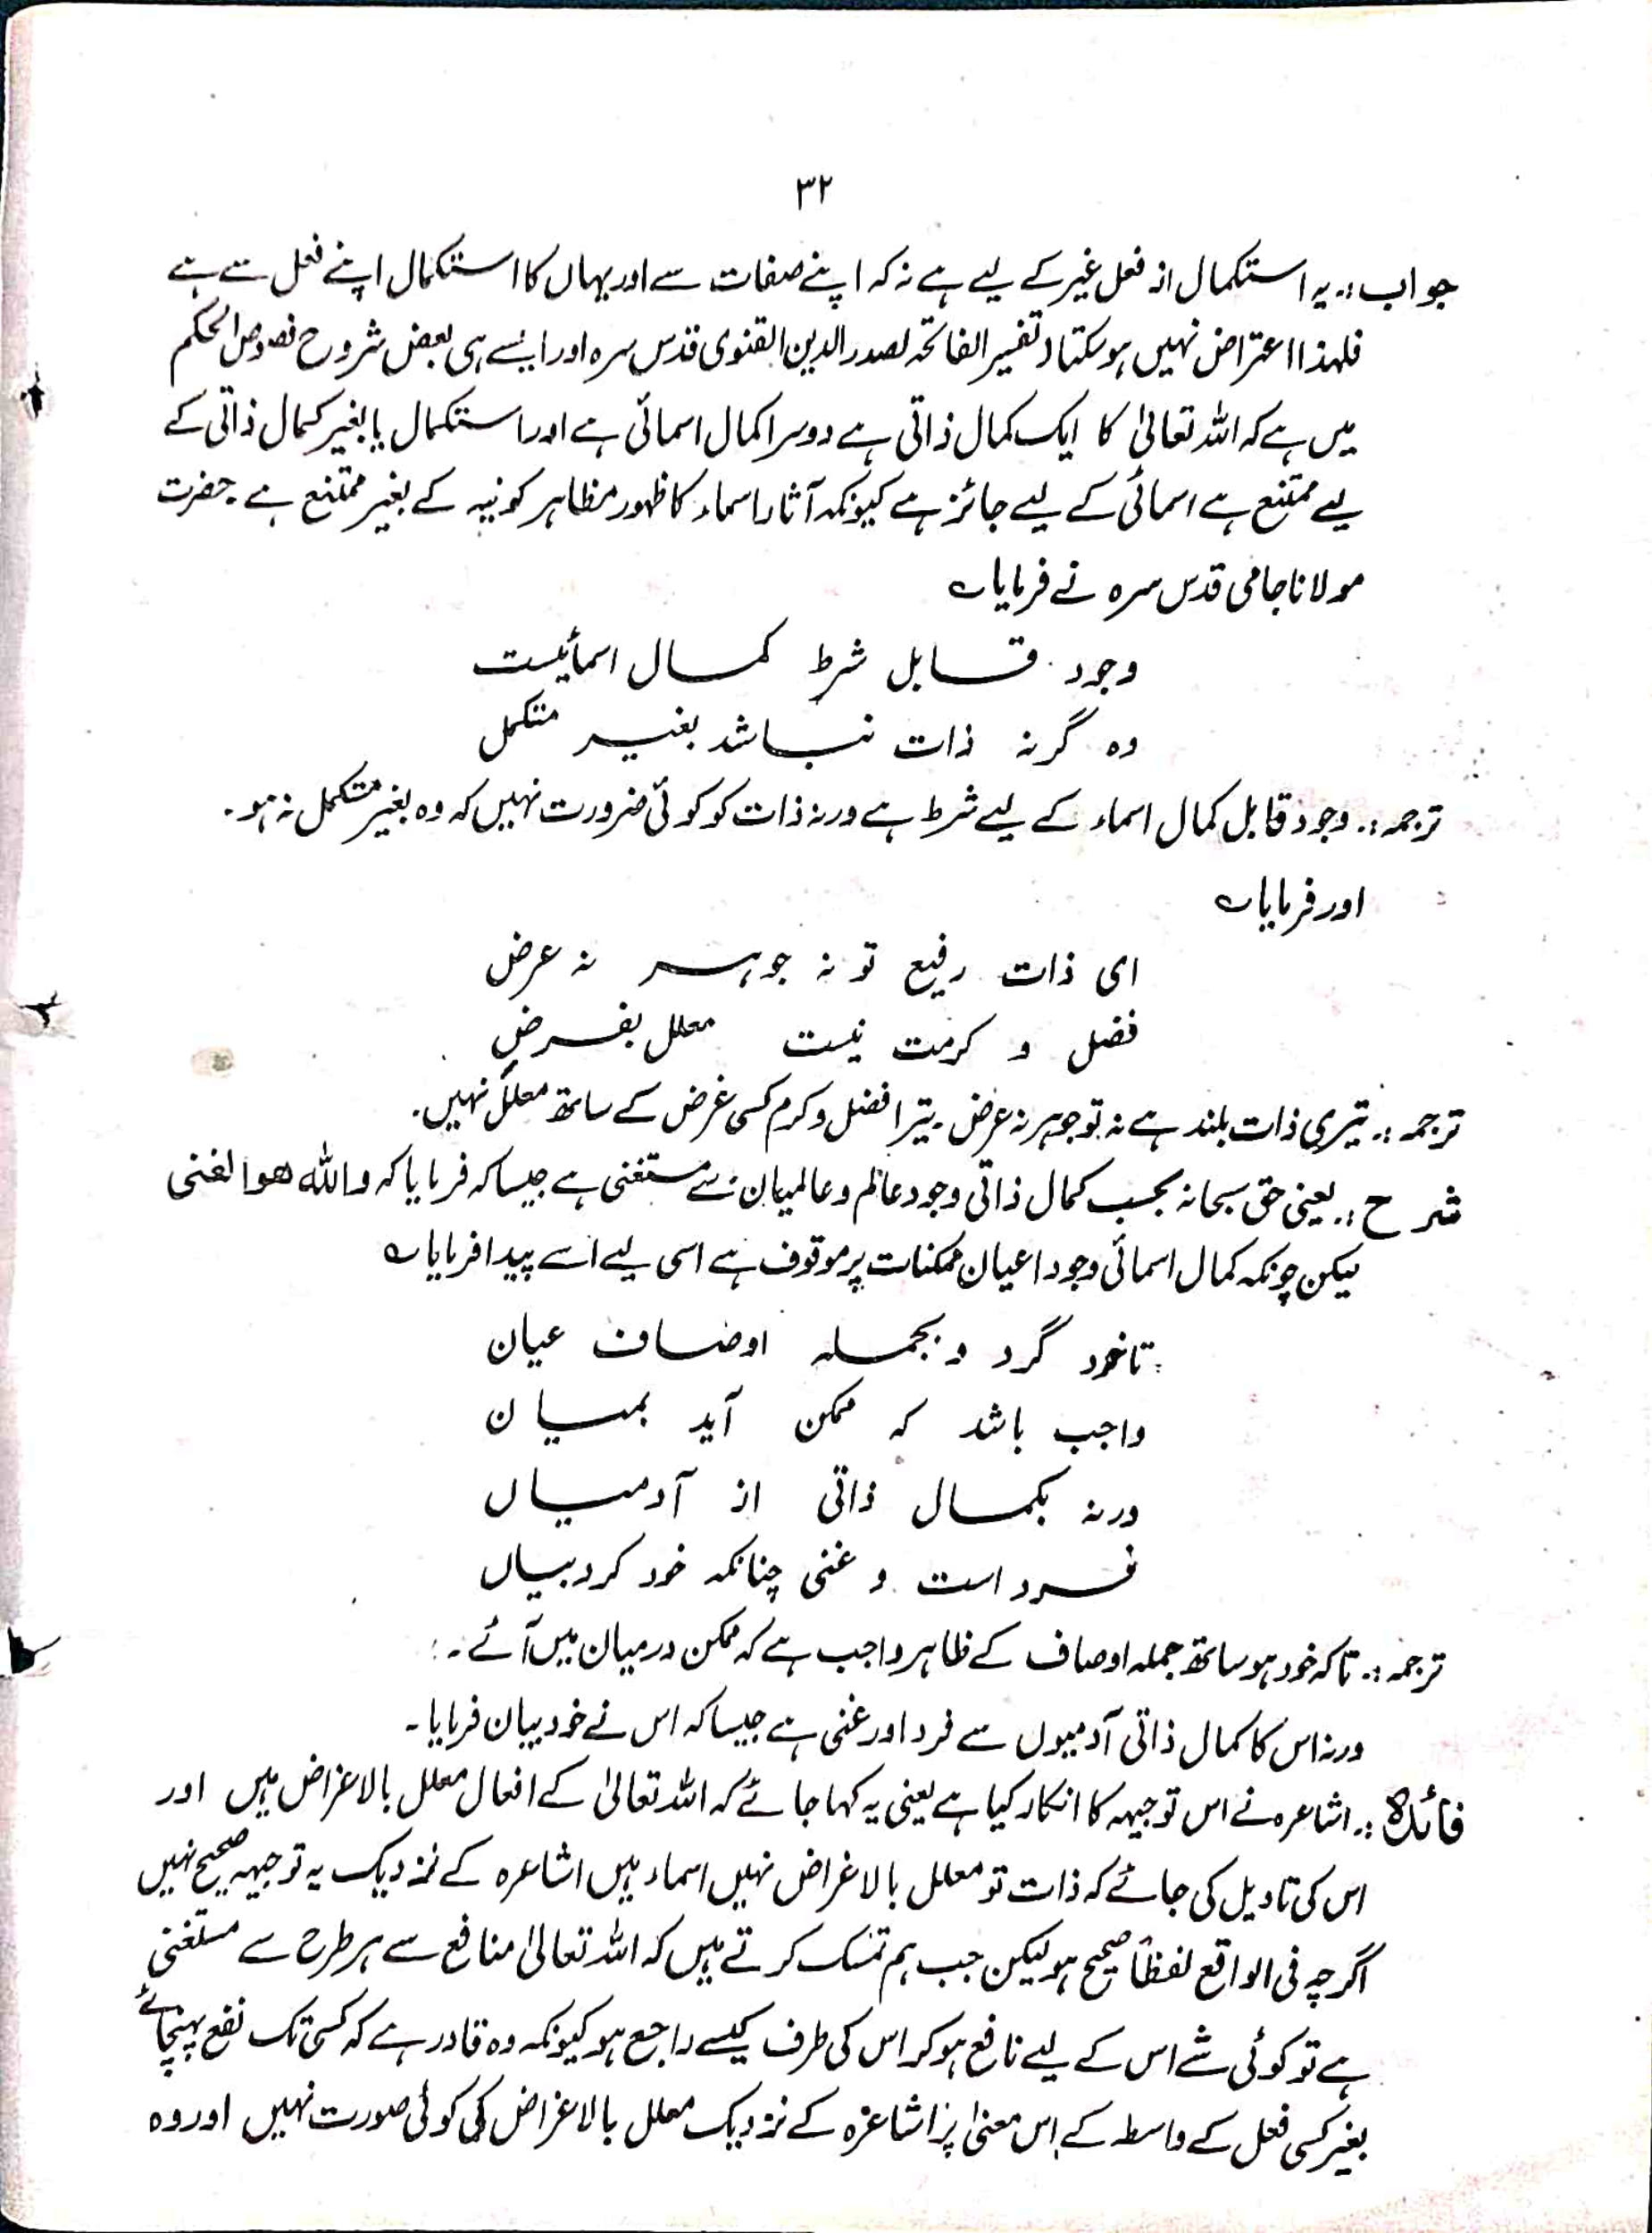 ۳۲
جواب:۔ یہ استکمال از فعل غیر کے لیے ہے نہ کہ اپنے صفات سے اور یہاں کا استکمال اپنے فعل سے ہے
فلہذا اعتراض نہیں ہو سکتا تفسیر الفاتحہ لصدر الدین القنوی قدس سرہ اور ایسے ہی بعض شروح فصوص الحکم
میں ہے کہ اللہ تعالیٰ کا ایک کمال ذاتی ہے دوسرا کمال اسمائی ہے اور استکمال بالغیر کمال ذاتی کے
لیے ممتنع ہے اسمائی کے لیے جائز ہے کیونکہ آثار اسماء کا ظہور مظاہر کونیہ کے بغیر ممتنع ہے حضرت
مولانا جامی قدس سرہ نے فرمایا ؎
وجود قابل شرط کمال اسمائیست
وہ گرنہ ذات نباشد بغیر متکمل
ترجمہ:۔ وجود قابل کمال اسماء کے لیے شرط ہے ورنہ ذات کو کوئی ضرورت نہیں کہ وہ بغیر متکمل نہ ہو۔
اور فرمایا ؎
ای ذات رفیع تو نہ جوہر نہ عرض
فضل و کرمت نیست معلل بغرض
ترجمہ:۔ تیری ذات بلند ہے نہ تو جوہر نہ عرض۔ تیرا فضل و کرم کسی غرض کے ساتھ معلل نہیں۔
شرح:۔ یعنی حق سبحانہ بحسب کمال ذاتی وجود عالم و عالمیان سے مستغنی ہے جیسا کہ فرمایا کہ واللہ ھو الغنی
لیکن چونکہ کمال اسمائی وجود اعیان ممکنات پر موقوف ہے اسی لیے اسے پیدا فرمایا ؎
تاخود گرد و بجملہ اوصاف عیان
واجب باشد کہ ممکن آید بمیان
ورنہ بکمال ذاتی از آدمیاں
فرد است و غنی چنانکہ خود کرد بیاں
ترجمہ:۔ تاکہ خود ہو ساتھ جملہ اوصاف کے ظاہر واجب ہے کہ ممکن درمیان میں آئے۔
ورنہ اس کا کمال ذاتی آدمیوں سے فرد اور غنی ہے جیسا کہ اس نے خود بیان فرمایا۔
فائدہ:۔ اشاعرہ نے اس توجیہہ کا انکار کیا ہے یعنی یہ کہا جائے کہ اللہ تعالیٰ کے افعال معلل بالاغراض ہیں اور
اس کی تاویل کی جائے کہ ذات تو معلل بالاغراض نہیں اسماء ہیں اشاعرہ کے نزدیک یہ توجیہہ صحیح نہیں
اگرچہ فی الواقع لفظاً صحیح ہو لیکن جب ہم تمسک کرتے ہیں کہ اللہ تعالیٰ منافع سے ہر طرح سے مستغنی
ہے تو کوئی شے اس کے لیے نافع ہو کر اس کی طرف کیسے راجع ہو کیونکہ وہ قادر ہے کہ کسی تک نفع پہنچائے
بغیر کسی فعل کے واسطہ کے اس معنیٰ پر اشاعرہ کے نزدیک معلل بالاغراض کی کوئی صورت نہیں اور وہ